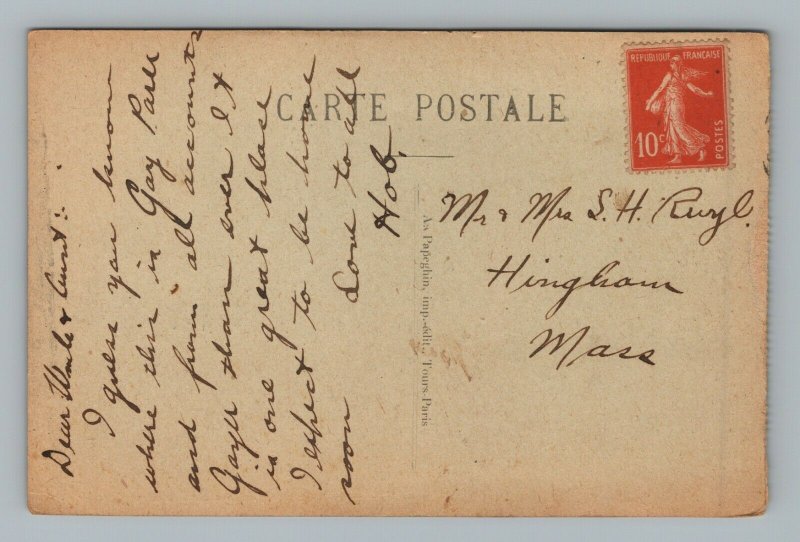 CARTE POSTALE
RÉPUBLIQUE FRANÇAISE
10c
POSTES
Dear Uncle & Aunt:
I guess you know
where this is Gay Paree
and from all accounts
Gayer than ever It
is one great place
I expect to be home
soon Love to all
Hob.
Mr & Mrs S. H.
Hingham
Mass
As Papeghin, imp.-édit., Tours-Paris